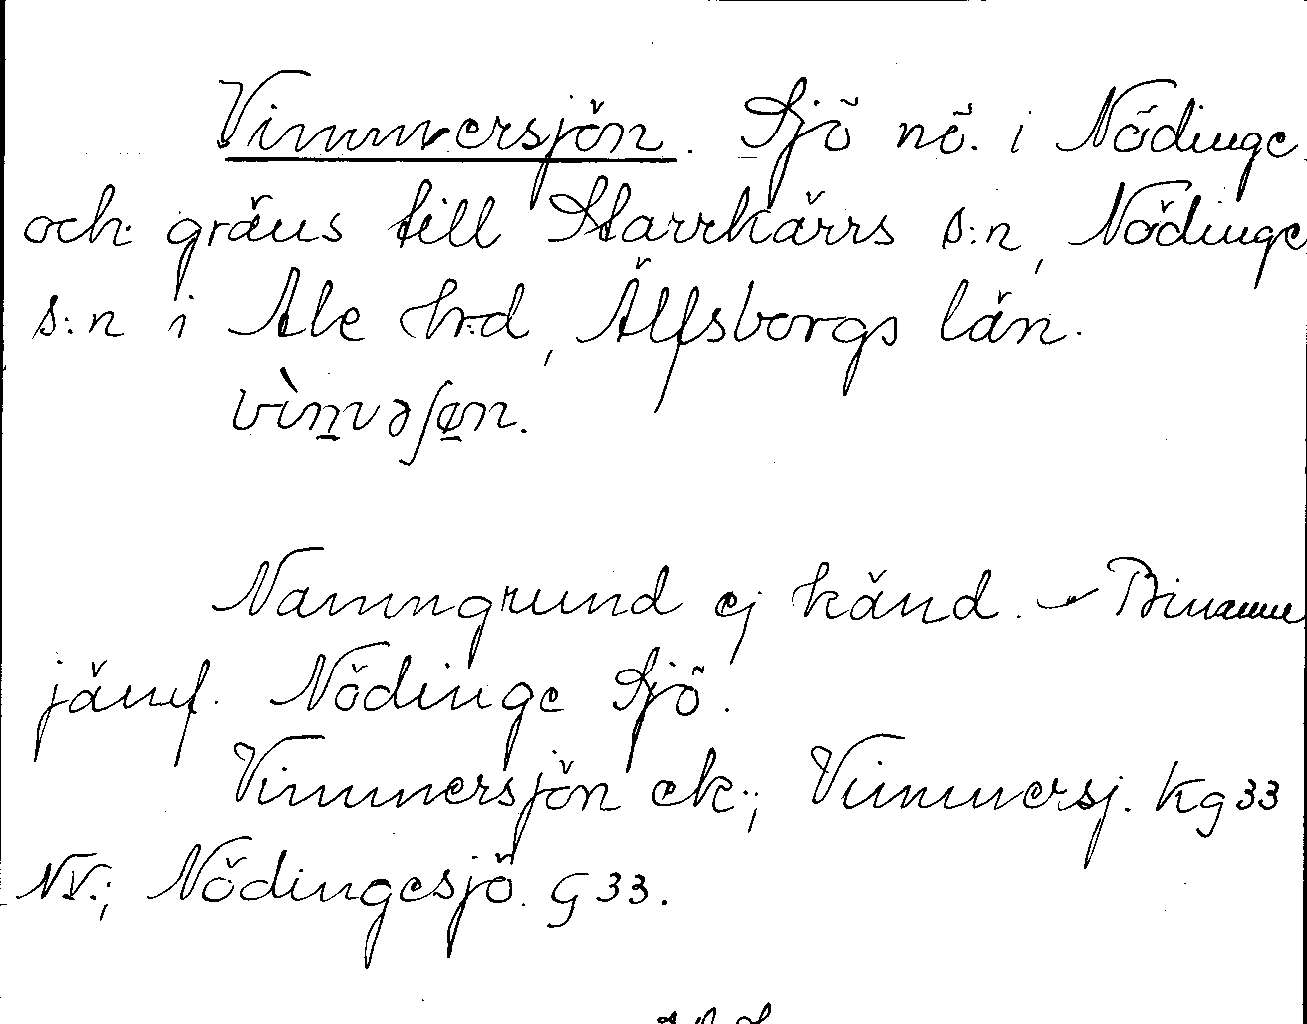 Vimmersjön. Sjö nö. i Nödinge
och gräns till Starrkärrs s:n, Nödinge
s:n i Ale h:d, Älfsborgs län.
vìm̲əʃøn.
Namngrund ej känd. – Binamn
jämf. Nödinge Sjö.
Vimmersjön ek.; Vimmersj. Kg 33
NV.; Nödingesjö. G 33.